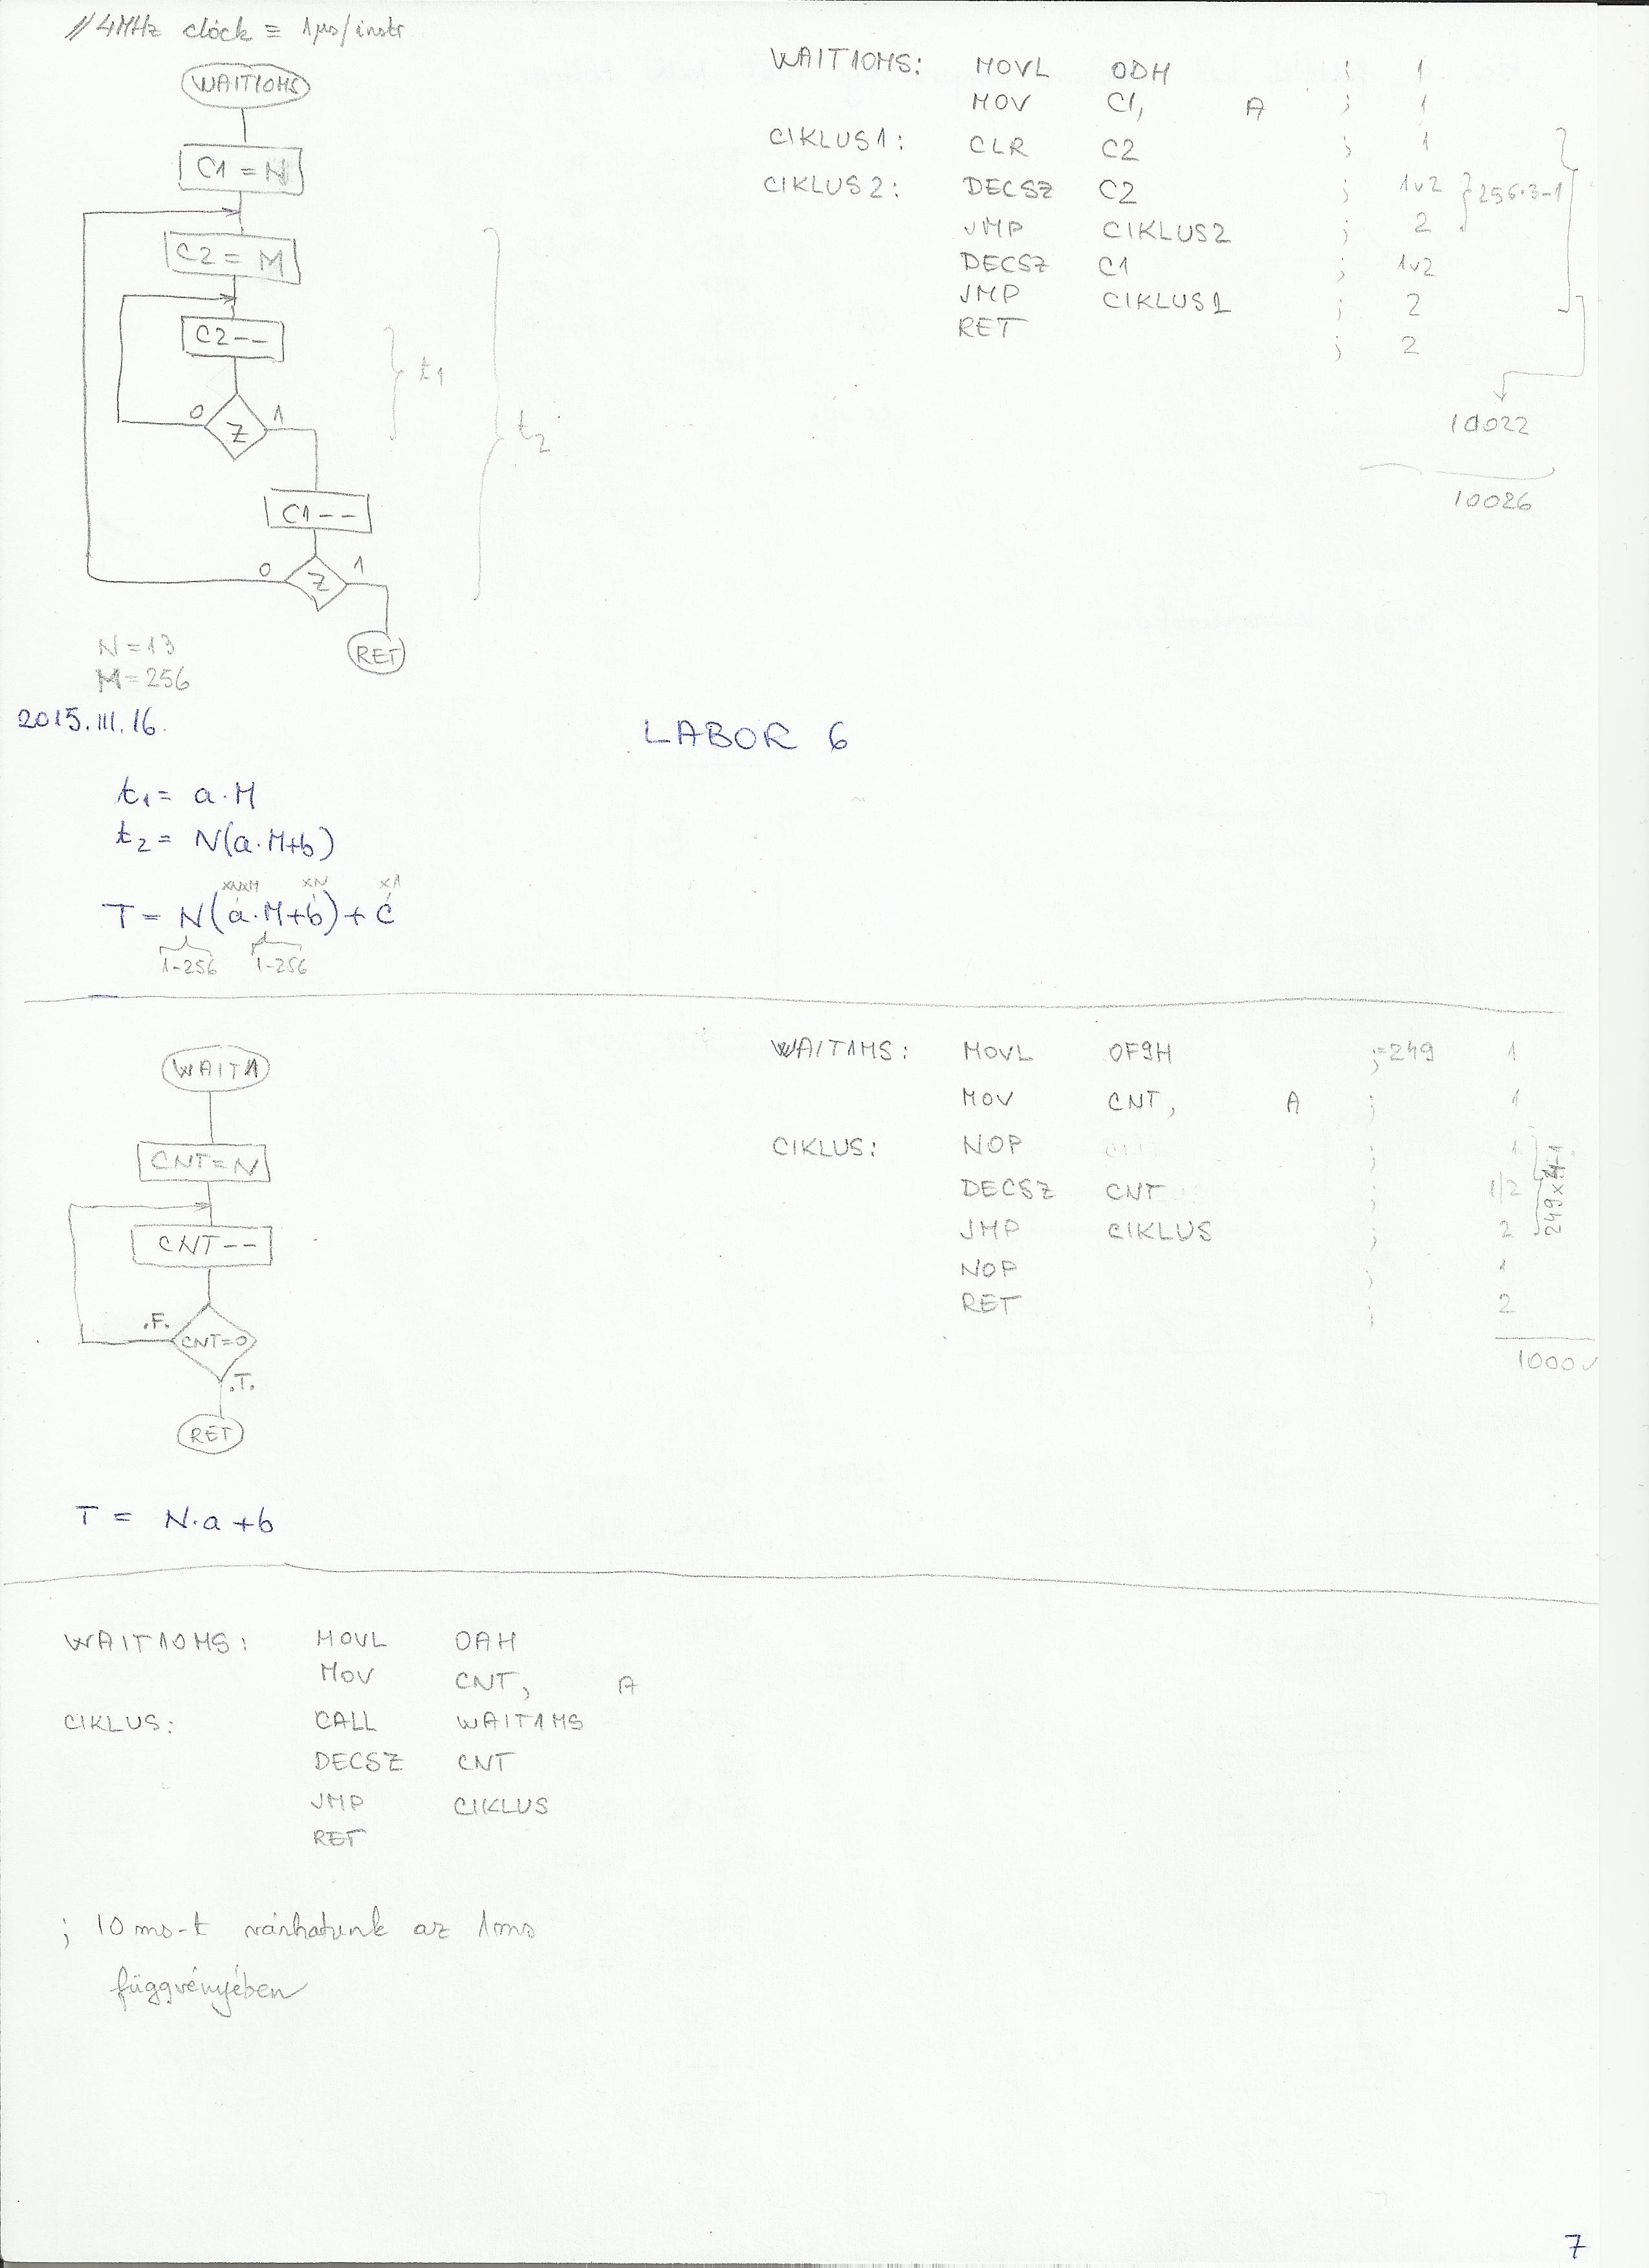 // 4MHz clock = 1µs/instr
WAIT10MS
C1 = N
C2 = M
C2--
t1
0 Z 1
t2
C1--
0 Z 1
RET
N = 13
M = 256
WAIT10MS: MOVL 0DH ; 1
MOV C1, A ; 1
CIKLUS1: CLR C2 ; 1
CIKLUS2: DECSZ C2 ; 1v2 } 256·3-1
JMP CIKLUS2 ; 2
DECSZ C1 ; 1v2
JMP CIKLUS1 ; 2
RET ; 2
10022
10026
2015.III.16.
LABOR 6
t1 = a·M
t2 = N(a·M+b)
xNxM xN x1
T = N(a·M+b)+c
1-256 1-256
WAIT1
CNT=N
CNT--
.F. CNT=0
.T.
RET
T = N·a+b
WAIT1MS: MOVL 0F9H ;=249 1
MOV CNT, A ; 1
CIKLUS: NOP ; 1
DECSZ CNT ; 1/2
JMP CIKLUS ; 2
249x4-1
NOP ; 1
RET ; 2
1000
WAIT10MS: MOVL 0AH
MOV CNT, A
CIKLUS: CALL WAIT1MS
DECSZ CNT
JMP CIKLUS
RET
; 10 ms-t várhatunk az 1ms
függvényében
7